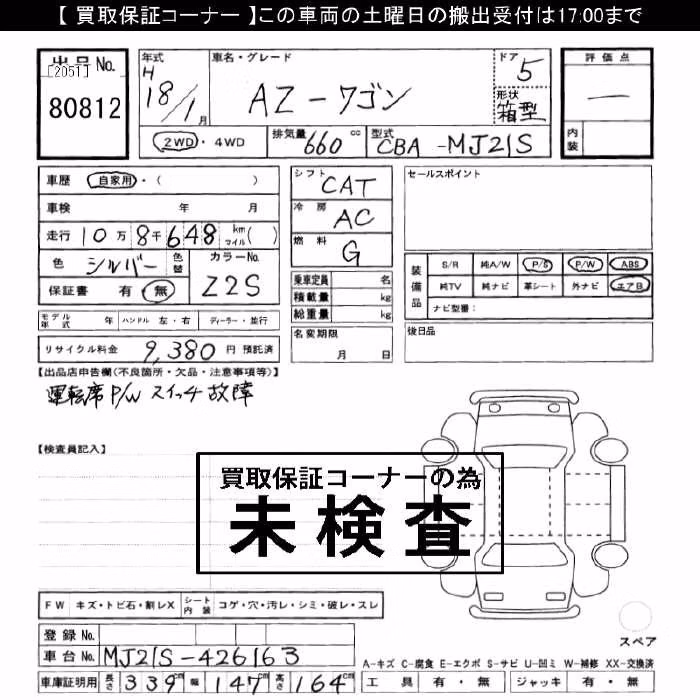 【 買取保証コーナー 】この車両の土曜日の搬出受付は17:00まで
出品No. [2051] 80812
年式 H 18/1月
車名・グレード AZ-ワゴン
ドア 5
形状 箱型
評価点 —
内装
2WD・4WD
排気量 660cc
型式 CBA-MJ21S
車歴 自家用・( )
車検 年 月
走行 10万8千648 km マイル( )
色 シルバー 色替
カラーNo. Z2S
保証書 有・無
シフト CAT
冷房 AC
燃料 G
乗車定員 名
積載量 kg
総重量 kg
セールスポイント
装備品 S/R 純A/W P/S P/W ABS
純TV 純ナビ 革シート 外ナビ エアB
ナビ型番:
モデル年式 年 ハンドル 左・右 ディーラー・並行
名変期限 月 日
後日品
リサイクル料金 9,380 円 預託済
【出品店申告欄(不良箇所・欠品・注意事項等)】
運転席P/Wスイッチ故障
【検査員記入】
買取保証コーナーの為
未検査
FW キズ・トビ石・割レX シート内装 コゲ・穴・汚レ・シミ・破レ・スレ
スペア
登録No.
車台No. MJ21S-426163
A-キズ C-腐食 E-エクボ S-サビ U-凹ミ W-補修 XX-交換済
車庫証明用 長さ 339cm 幅 147cm 高さ 164cm
工具 有・無 ジャッキ 有・無